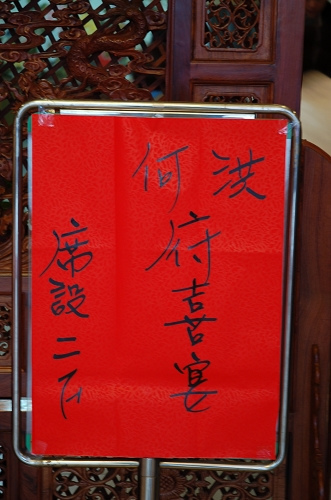 洪何府喜宴
席設二F